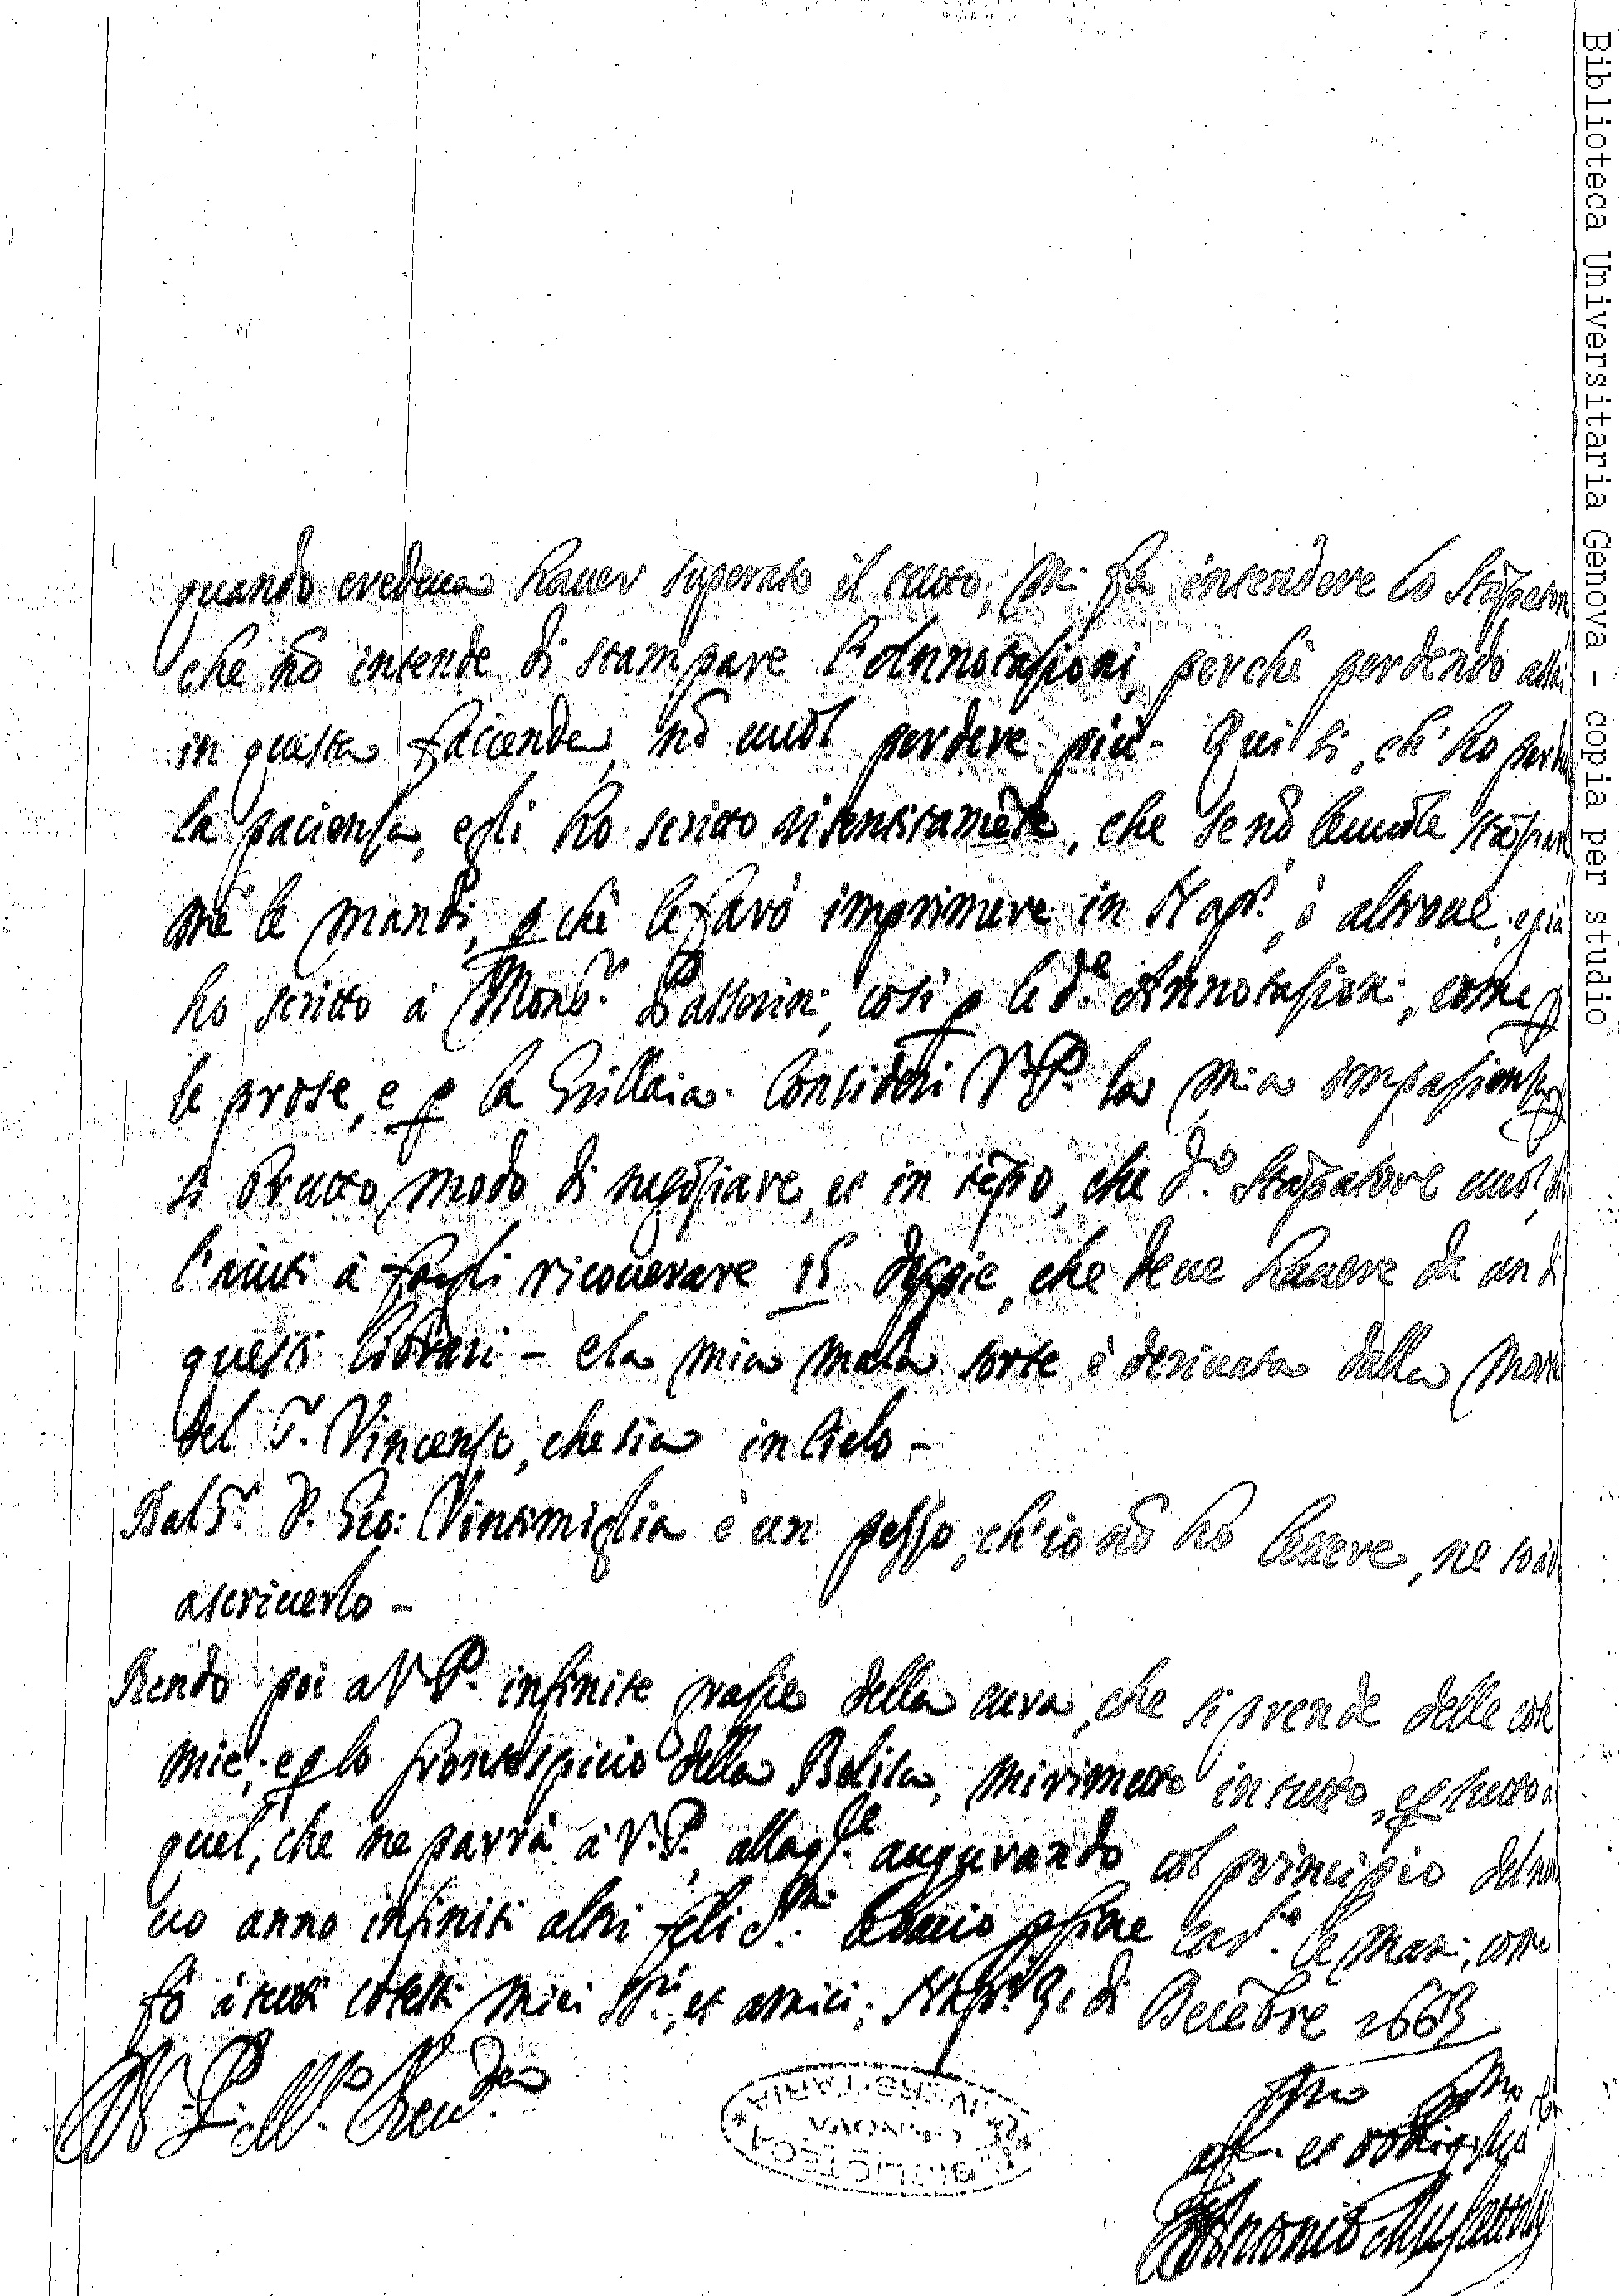 quando credeua hauer superato il tutto, mi fa intendere lo Stãpatore
che nõ intende di stampare l'Annotazioni, perche perdendo assai
in questa facienda, nõ uuol perdere più. Qui si, ch'ho perdu
la pacienza, e gli ho scritto risentitamẽte, che se nõ le uuole stãpare
me le mandi, p che le farò imprimere in Nap.i, ò altroue, e già
ho scritto à Mons.r Passerini, così p le d.e Annotazioni, come p
le prose, e p la Grillaia. Consideri V.P. la mia impazienza p
sì brutto modo di negoziare, et in tẽpo, che d.o Stãpatore uuol, ch
l'aiuti à fargli ricouerare 15 doppie, che deue hauere da un di
questi librari - e la mia mala sorte è deriuata dalla morte
del S.r Vincenzo, che sia in Cielo -
Dal S.r D. Gio: Vintimiglia è un pezzo, ch'io nõ ho lettere, ne so in
ascriuerlo -
Rendo poi a V.P. infinite grazie della cura, che si prende delle cose
mie; e p lo frontespicio della Belisa, mi rimetto in tutto, e p tutto à
quel, che ne parrà à V.P., alla q.le augurando col principio del nuo
uo anno infiniti altri felic.mi le bacio p fine le mani, come
fò à tutti cotesti miei SS.ri, et amici; Nap.i 31 di Decẽbre 1663
D. V. P. M.to Reu.da
et obligat.
Antonio Muscettola
R. BIBLIOTECA
GENOVA
UNIVERSITARIA
Biblioteca Universitaria Genova - copia per studio